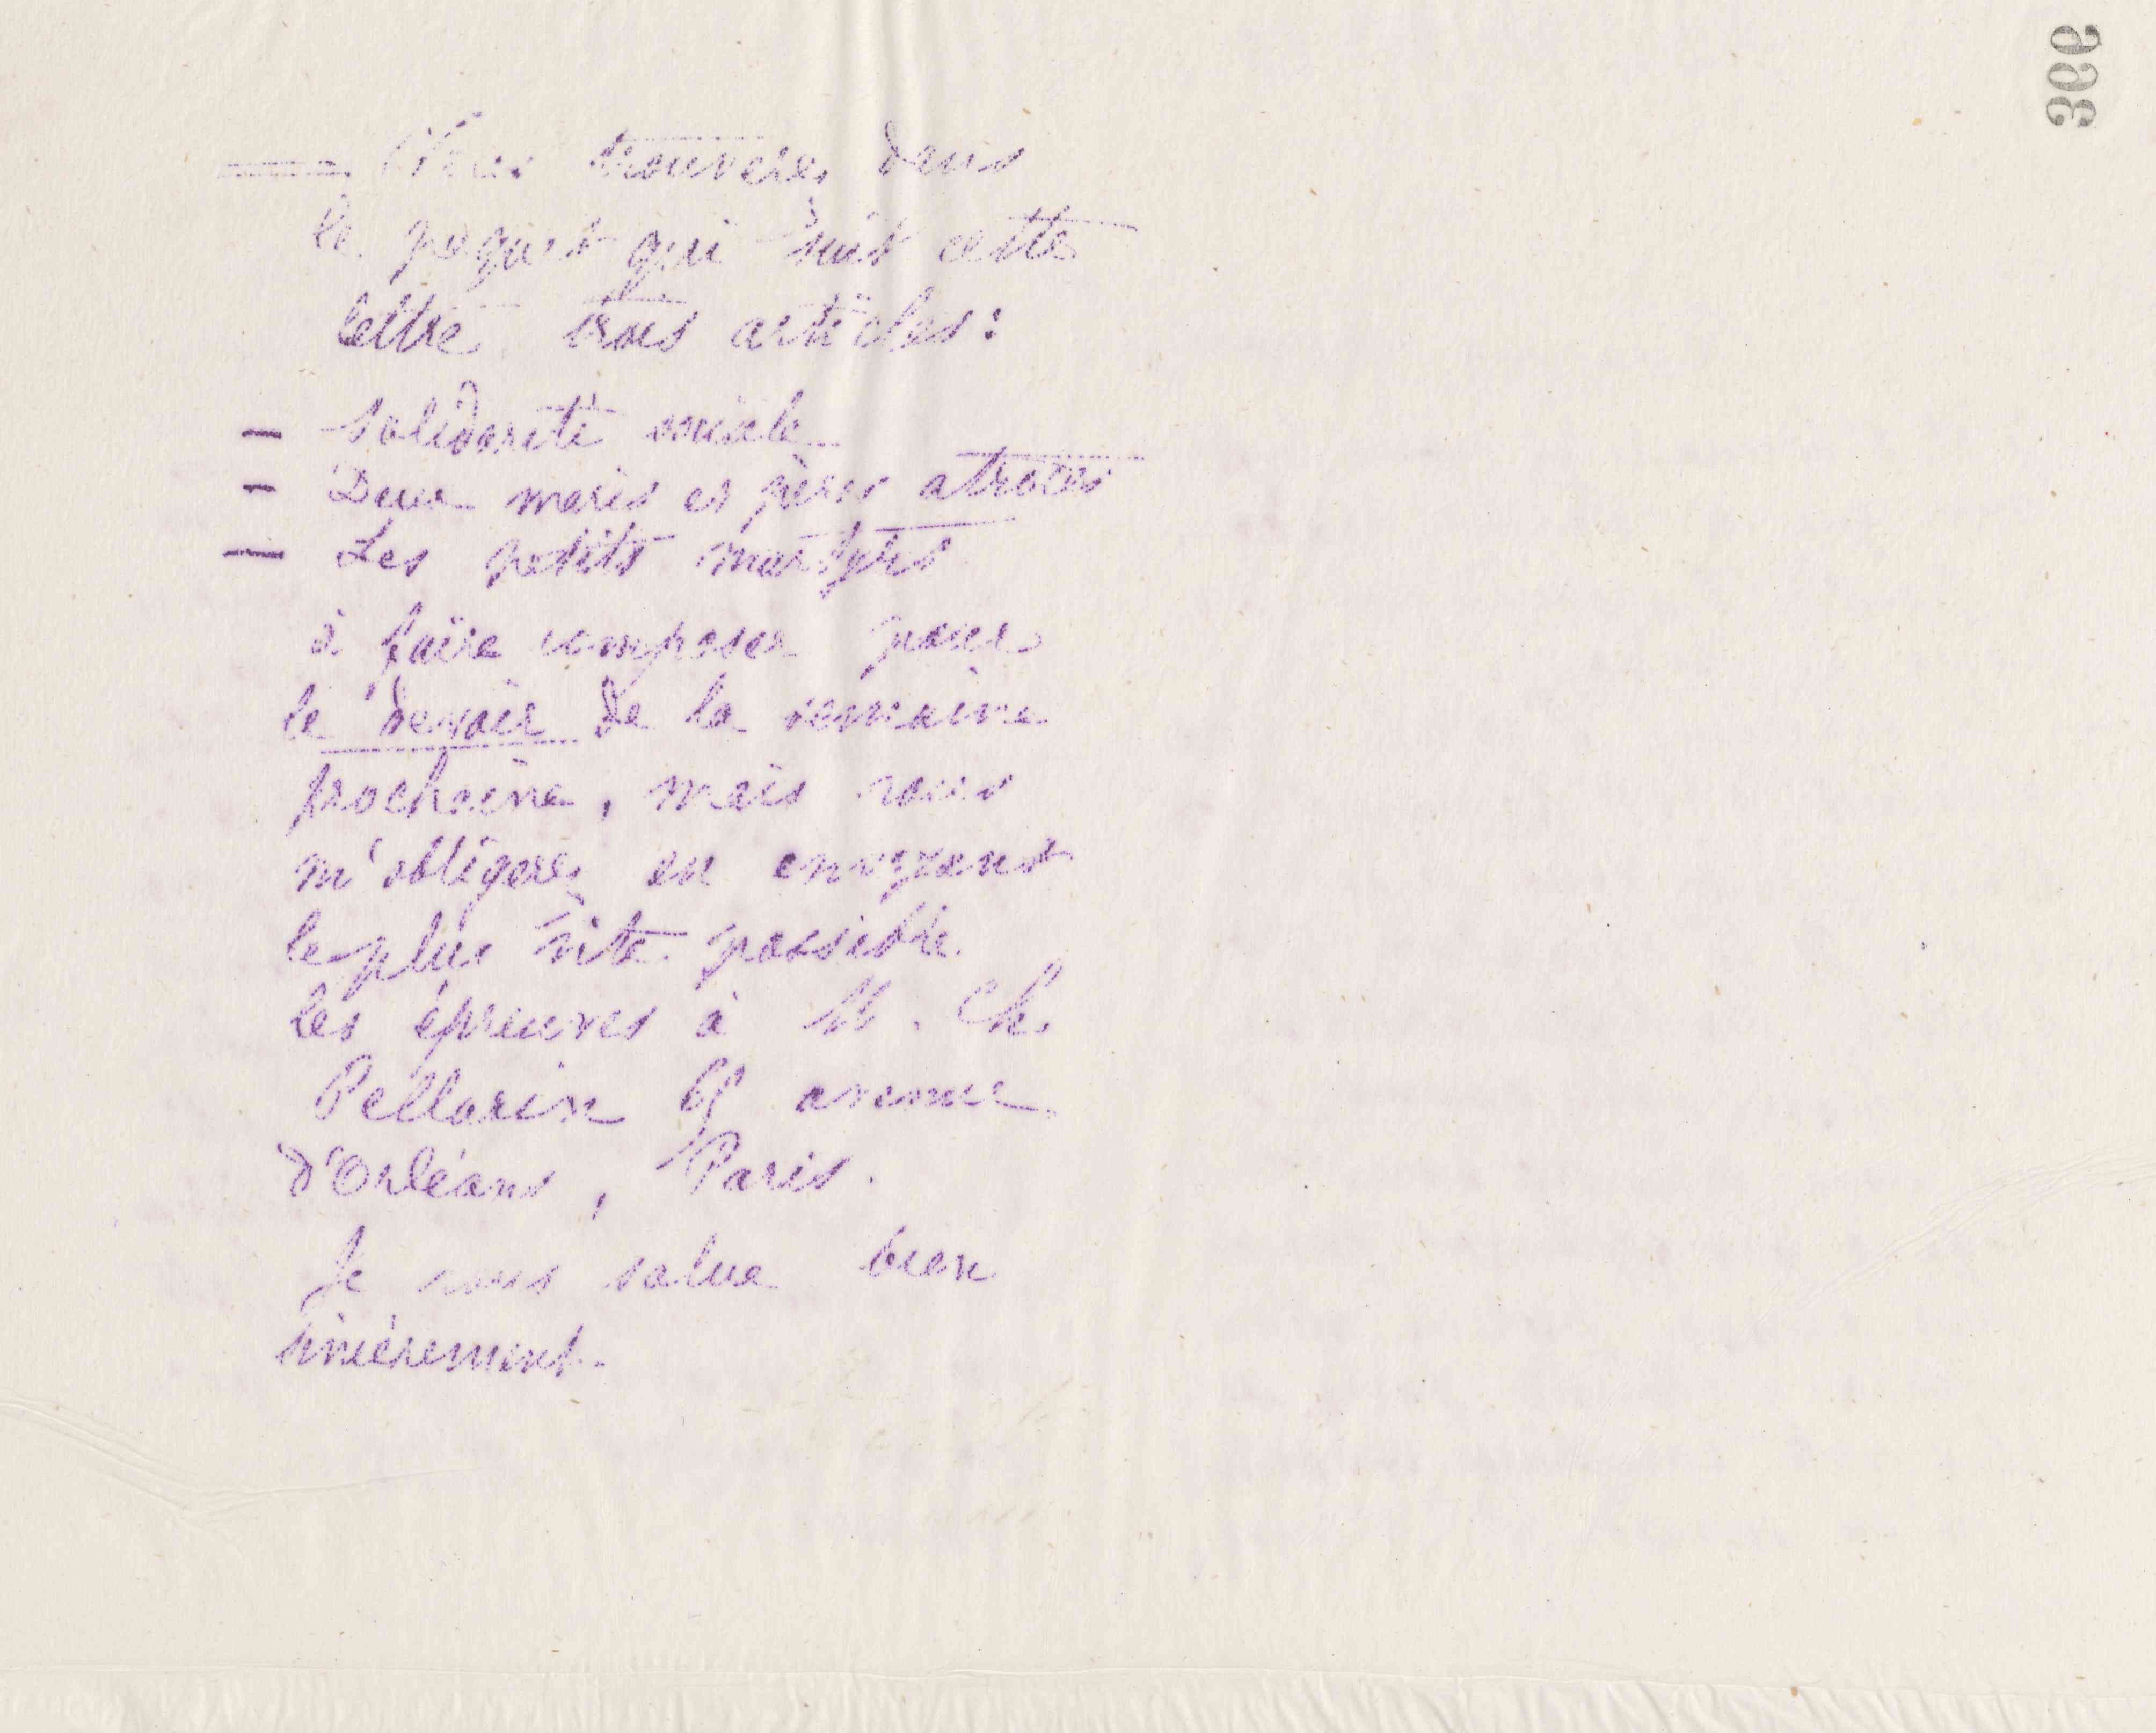 366
Vous trouverez dans
le paquet qui suit cette
lettre trois articles:
— Solidarité sociale
— Deux maris et pères atroces
— Les petits martyrs
à faire composer pour
le devoir de la semaine
prochaine, mais vous
m'obligerez en envoyant
le plus vite possible
les épreuves à M. Ch.
Pellarin avenue
d'Orléans, Paris.
Je vous salue bien
sincèrement.